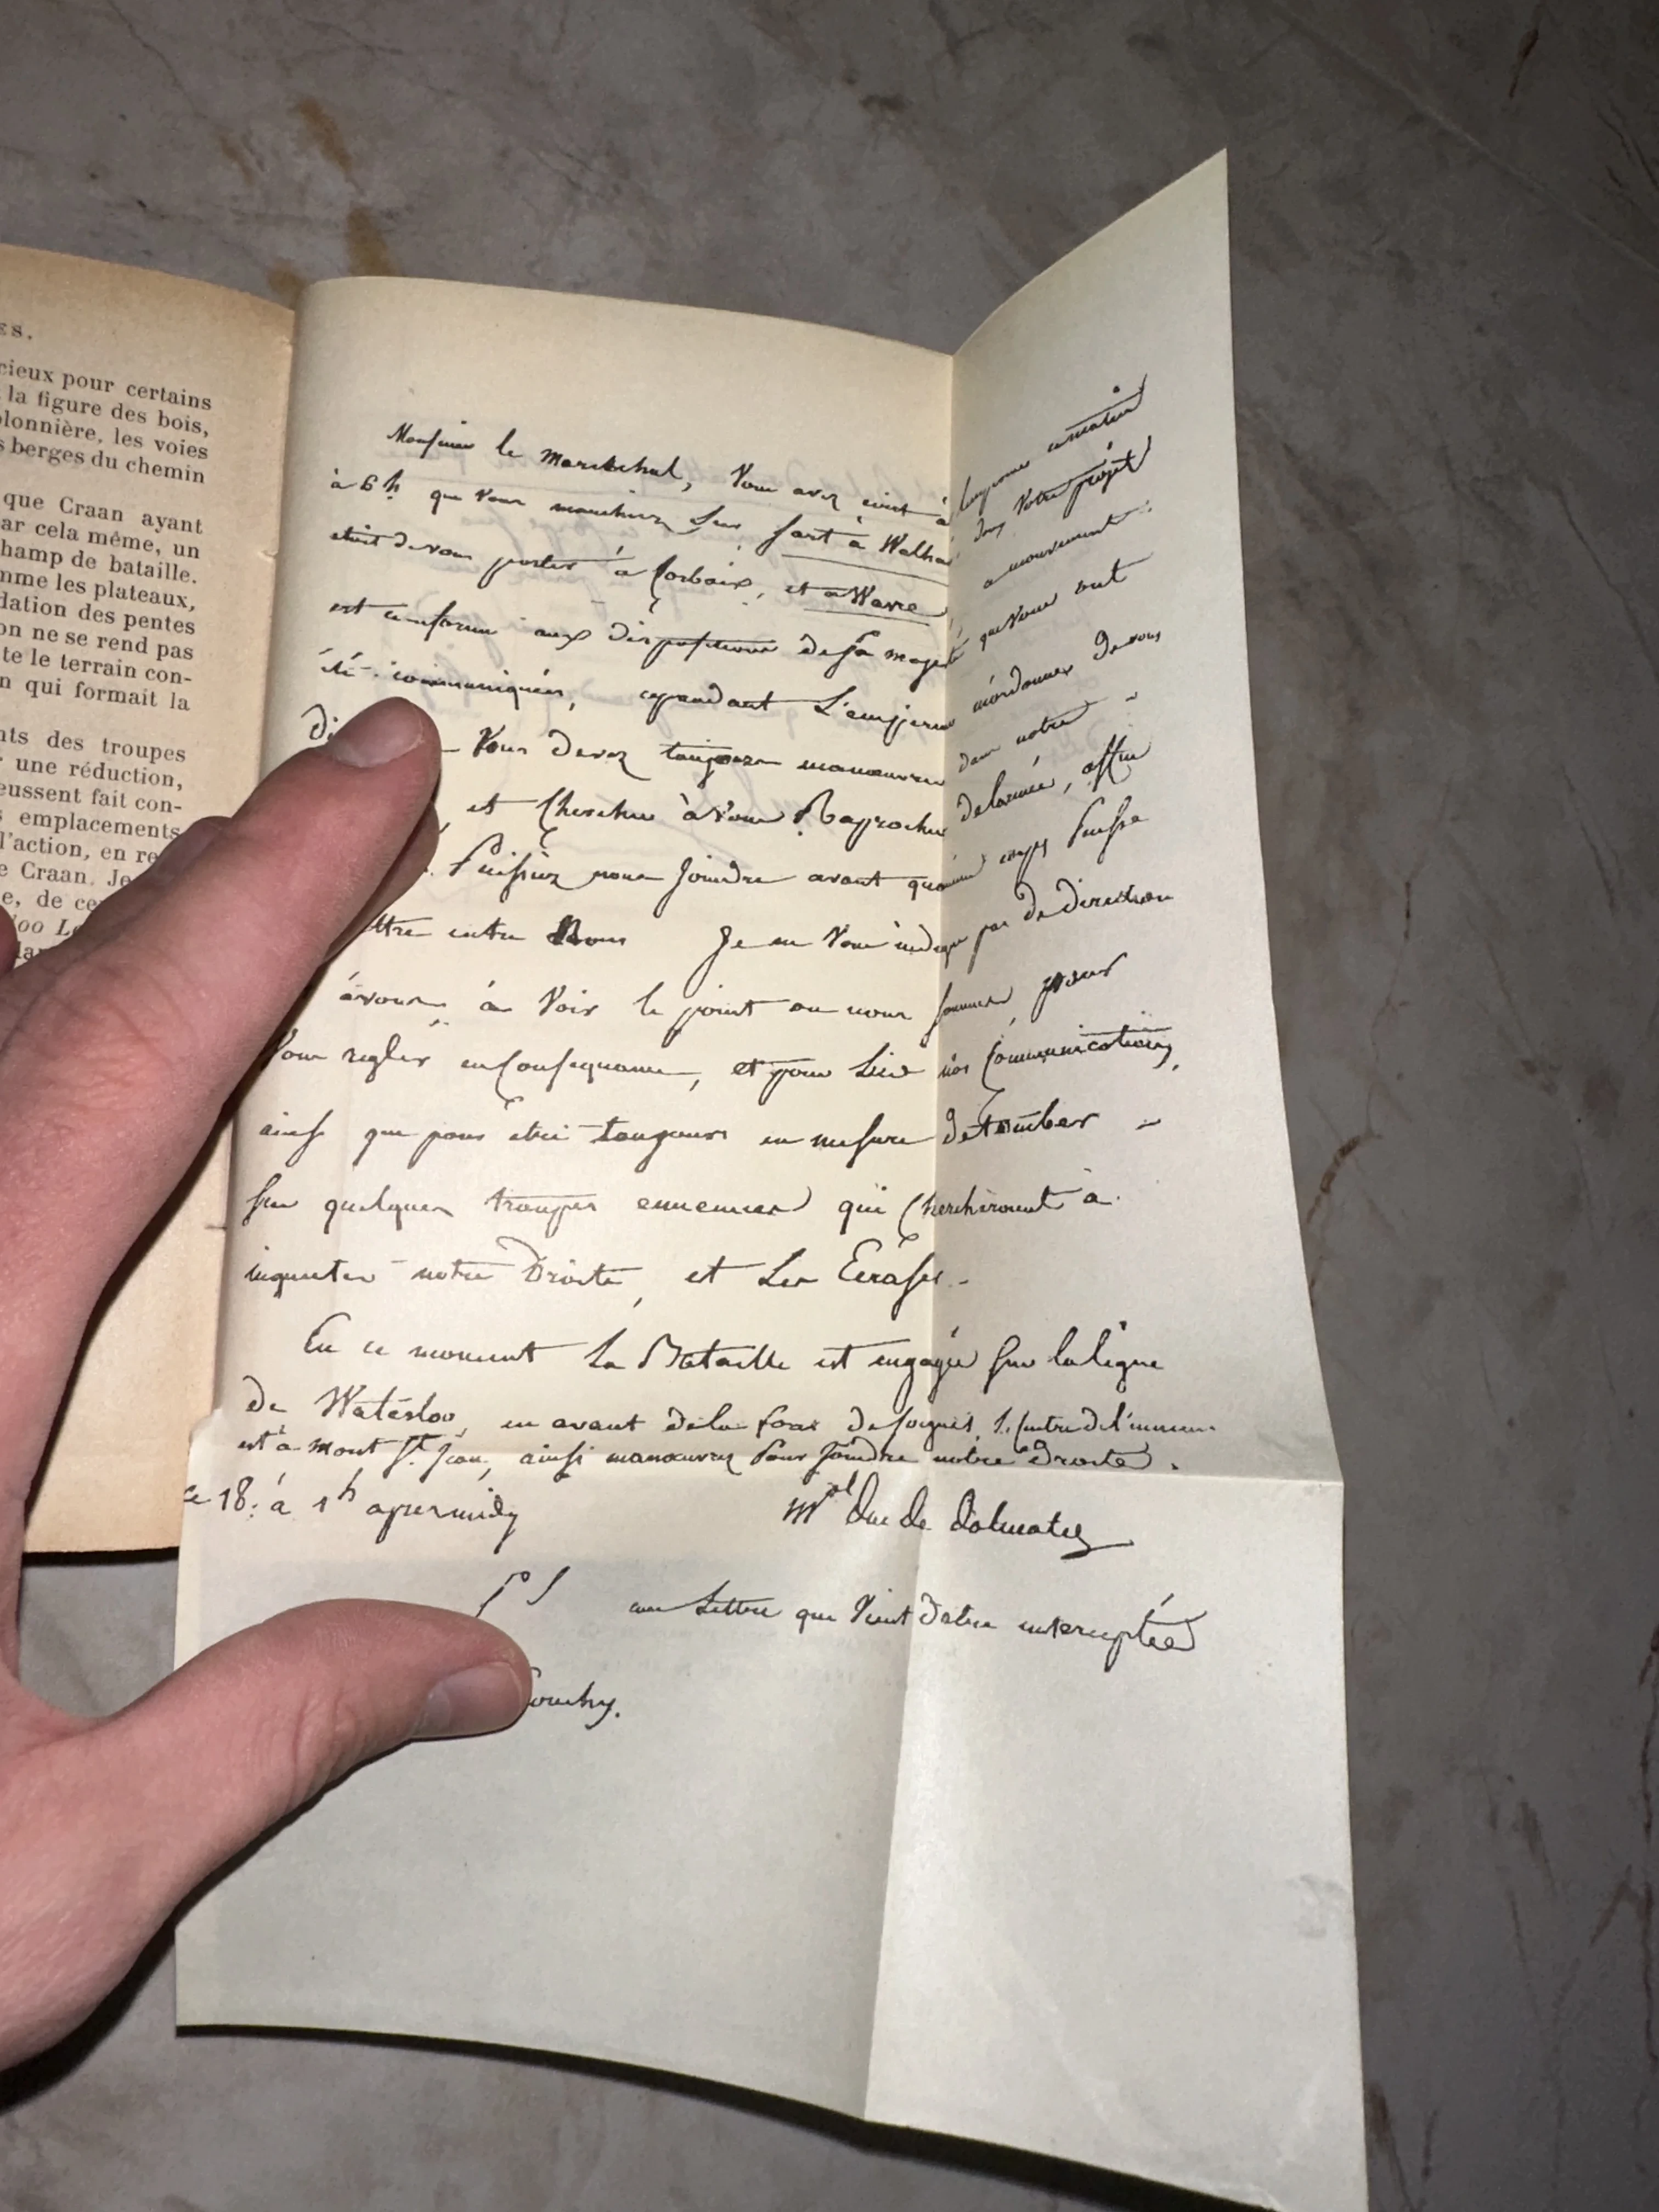 ES.
cieux pour certains
la figure des bois,
olonnière, les voies
s berges du chemin
que Craan ayant
ar cela même, un
hamp de bataille.
mme les plateaux,
dation des pentes
on ne se rend pas
te le terrain con-
n qui formait la
nts des troupes
r une réduction,
eussent fait con-
s emplacements
l'action, en re
e Craan. Je
e, de ce
oo L
Monsieur le marechal, Vous avez écrit à ce matin
à 6 h. que vous marcheriez sur Sart à Walhai votre projet
était de vous porter à Corbaix, et à Wavre, ce mouvement
est conforme aux dispositions de Sa majesté qui vous ont
été communiquées, cependant L'empereur m'ordonne de vous
Vous devez toujours manœuvrer dans notre
, et Chercher à Vous Raprocher de larmée, affin
Puissiez nous Joindre avant qu'aucun corps Puisse
ttre entre Nous Je ne Vous indique pas de direction
à vous à Voir le point ou nous sommes pour
Vous regler en Consequence, et pour Lier nos Communications,
ainsi que pour être toujours en mesure de tomber
sur quelques troupes ennemies qui Chercheroient à
inquieter notre Droite, et Les Ecraser
En ce moment La Bataille est engagée sur la ligne
De Waterloo, en avant de la de Soignes,
est à mont St. Jean, ainsi manœuvrez Pour Joindre notre Droite.
ce 18. à 1h apres midy
Mal Duc de Dalmatie
PS
une Lettre qui Vient d'etre interceptée
ouchy.